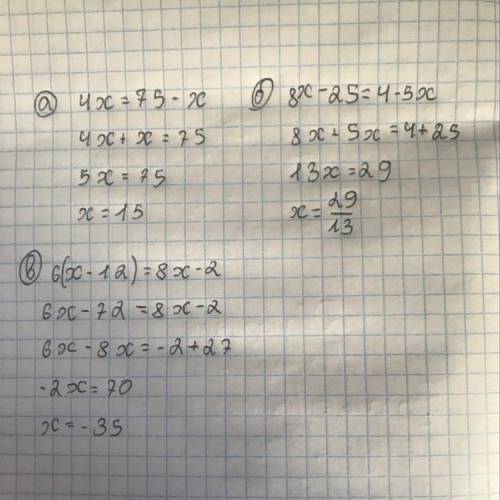 а) 4x = 75 - x
4x + x = 75
5x = 75
x = 15
б) 8x - 25 = 4 - 5x
8x + 5x = 4 + 25
13x = 29
x = 29/13
в) 6(x - 12) = 8x - 2
6x - 72 = 8x - 2
6x - 8x = -2 + 27
-2x = 70
x = -35